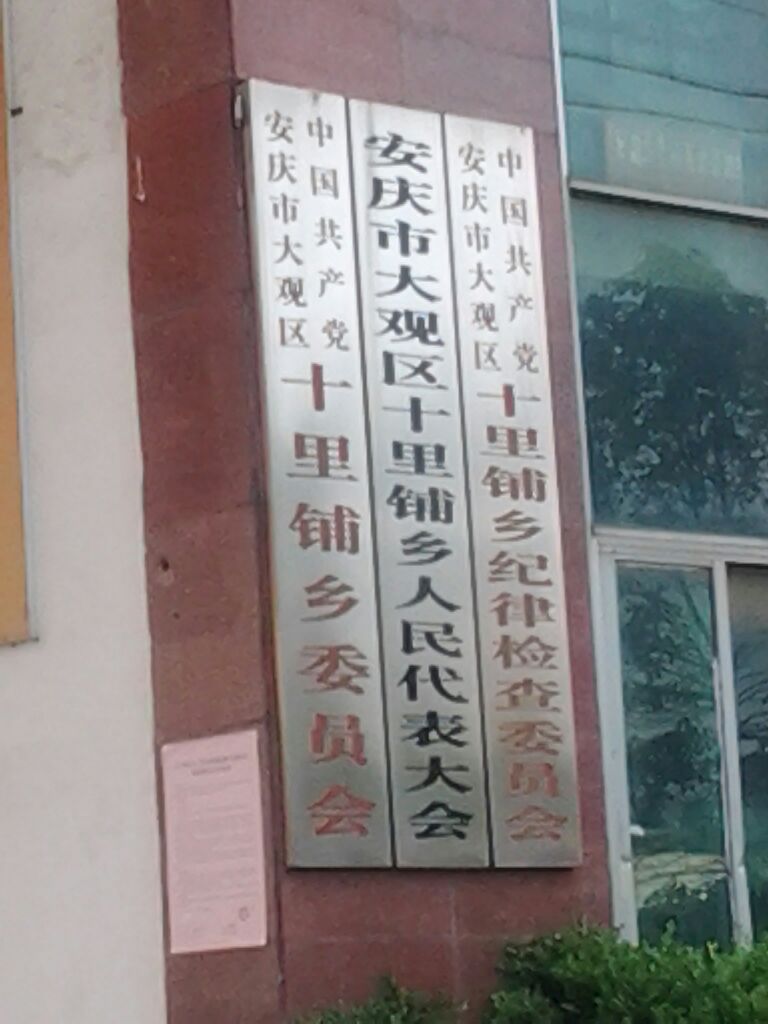 中国共产党
安庆市大观区
十里铺乡委员会
安庆市大观区十里铺乡人民代表大会
中国共产党
安庆市大观区
十里铺乡纪律检查委员会